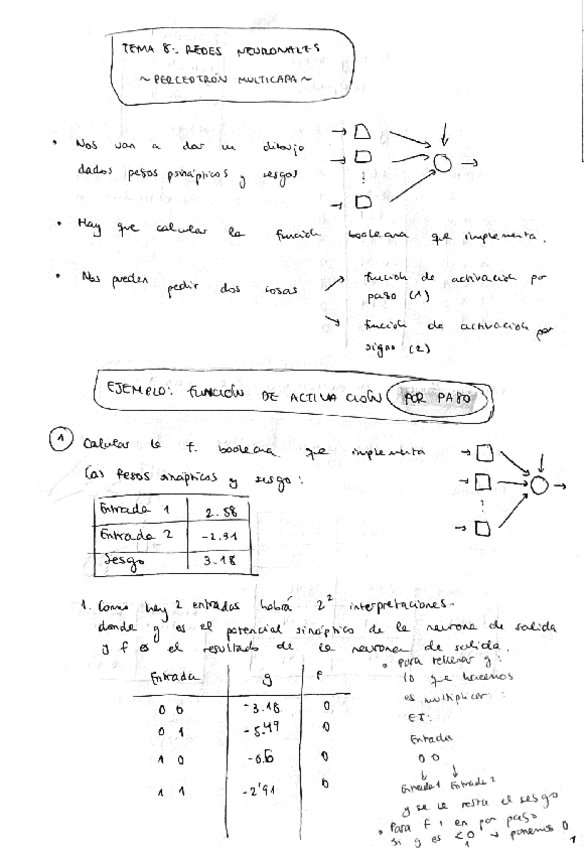 TEMA 8: REDES NEURONALES
~ PERCEPTRÓN MULTICAPA ~
• Nos van a dar un dibujo
dados pesos psinápticos y sesgos
• Hay que calcular la función booleana que implementa.
• Nos pueden pedir dos cosas
función de activación por
paso (1)
función de activación por
signo (2)
EJEMPLO: FUNCIÓN DE ACTIVACIÓN POR PASO
1 Calcular la f. booleana que implementa
los pesos sinápticos y sesgo:
Entrada 1 2.58
Entrada 2 -2.31
Sesgo 3.18
1. Como hay 2 entradas habrá 2² interpretaciones.
donde g es el potencial sináptico de la neurona de salida
y f es el resultado de la neurona de salida.
Entrada g F
0 0 -3.18 0
0 1 -5.49 0
1 0 -0.6 0
1 1 -2'91 0
• Para rellenar g:
lo que hacemos
es multiplicar:
EJ:
Entrada
0 0
Entrada 1 Entrada 2
y se le resta el sesgo
• Para f, en por paso
si g es <0 → ponemos 0
1